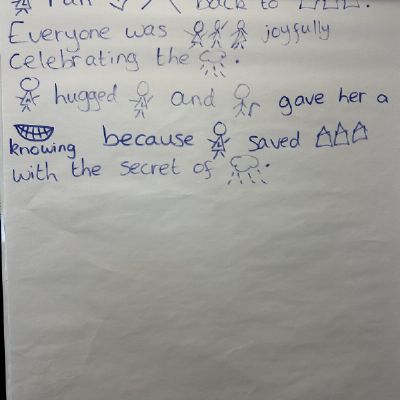 ran back to .
Everyone was joyfully
celebrating the .
hugged and gave her a
because saved
knowing
with the secret of .